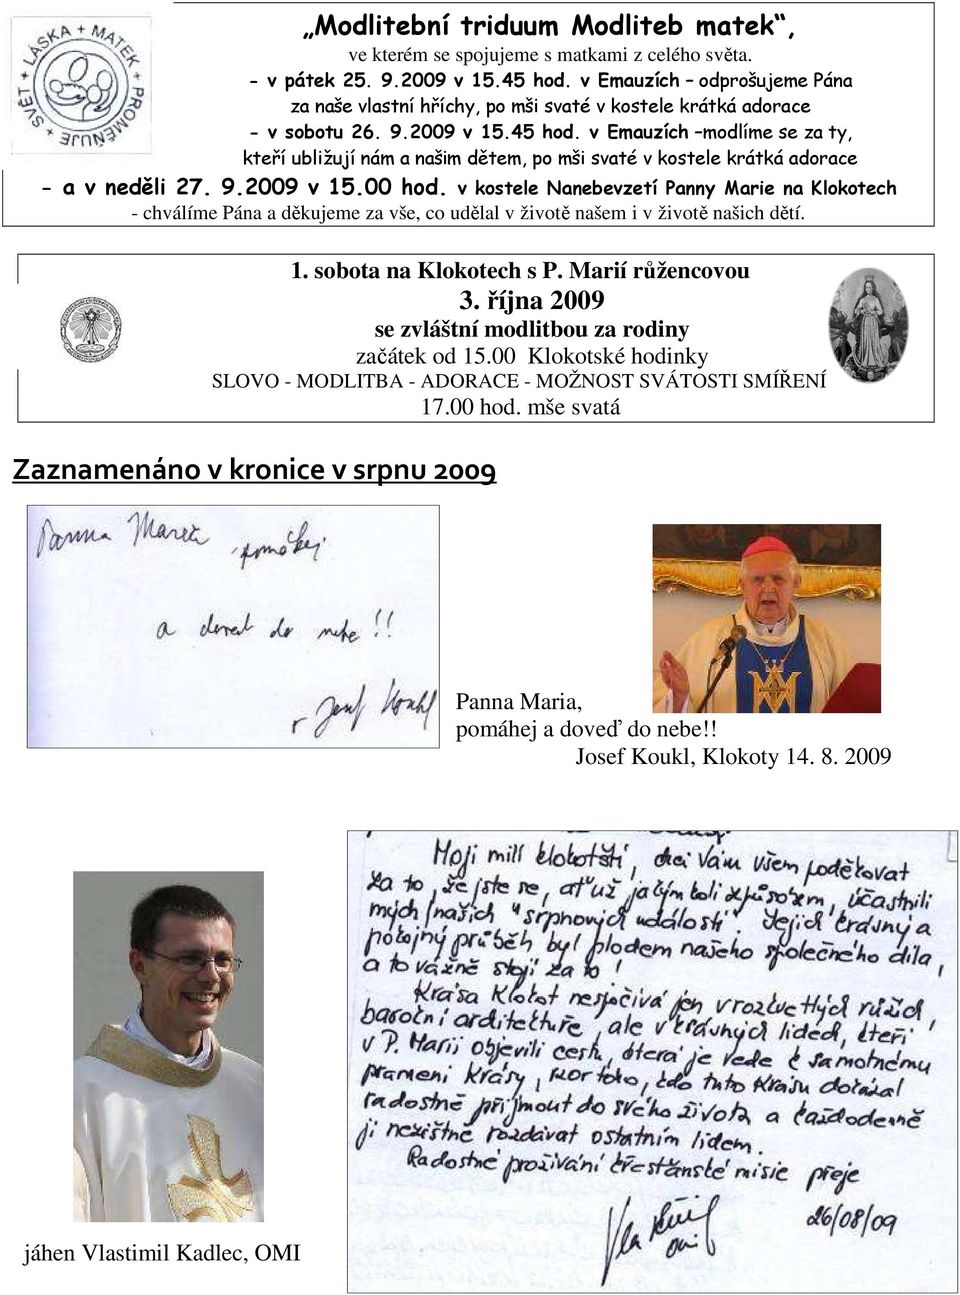 LÁSKA + MATEK + PROMĚŇUJE + SVĚT +
„Modlitební triduum Modliteb matek“,
ve kterém se spojujeme s matkami z celého světa.
- v pátek 25. 9.2009 v 15.45 hod. v Emauzích – odprošujeme Pána
za naše vlastní hříchy, po mši svaté v kostele krátká adorace
- v sobotu 26. 9.2009 v 15.45 hod. v Emauzích –modlíme se za ty,
kteří ubližují nám a našim dětem, po mši svaté v kostele krátká adorace
- a v neděli 27. 9.2009 v 15.00 hod. v kostele Nanebevzetí Panny Marie na Klokotech
- chválíme Pána a děkujeme za vše, co udělal v životě našem i v životě našich dětí.
1. sobota na Klokotech s P. Marií růžencovou
3. října 2009
se zvláštní modlitbou za rodiny
začátek od 15.00 Klokotské hodinky
SLOVO - MODLITBA - ADORACE - MOŽNOST SVÁTOSTI SMÍŘENÍ
17.00 hod. mše svatá
Zaznamenáno v kronice v srpnu 2009
Panna Maria, pomáhej
a doveď do nebe!!
Josef Koukl
Panna Maria,
pomáhej a doveď do nebe!!
Josef Koukl, Klokoty 14. 8. 2009
Moji milí klokotští, chci Vám všem poděkovat
za to, že jste se, ať už jakýmkoli způsobem, účastnili
mých/našich "srpnových událostí". Jejich krásný a
pokojný průběh byl plodem našeho společného díla,
a to vážně stojí za to!
Krása Klokot nespočívá jen v rozkvetlých růžích,
barokní architektuře, ale v krásných lidech, kteří
v P. Marii objevili cestu, která je vede k samotnému
prameni Krásy, kor toho, kdo tuto Krásu dokázal
radostně přijmout do svého života a každodenně
ji nezištně rozdávat ostatním lidem.
Radostné prožívání křesťanské misie přeje
26/08/09
jáhen Vlastimil Kadlec, OMI